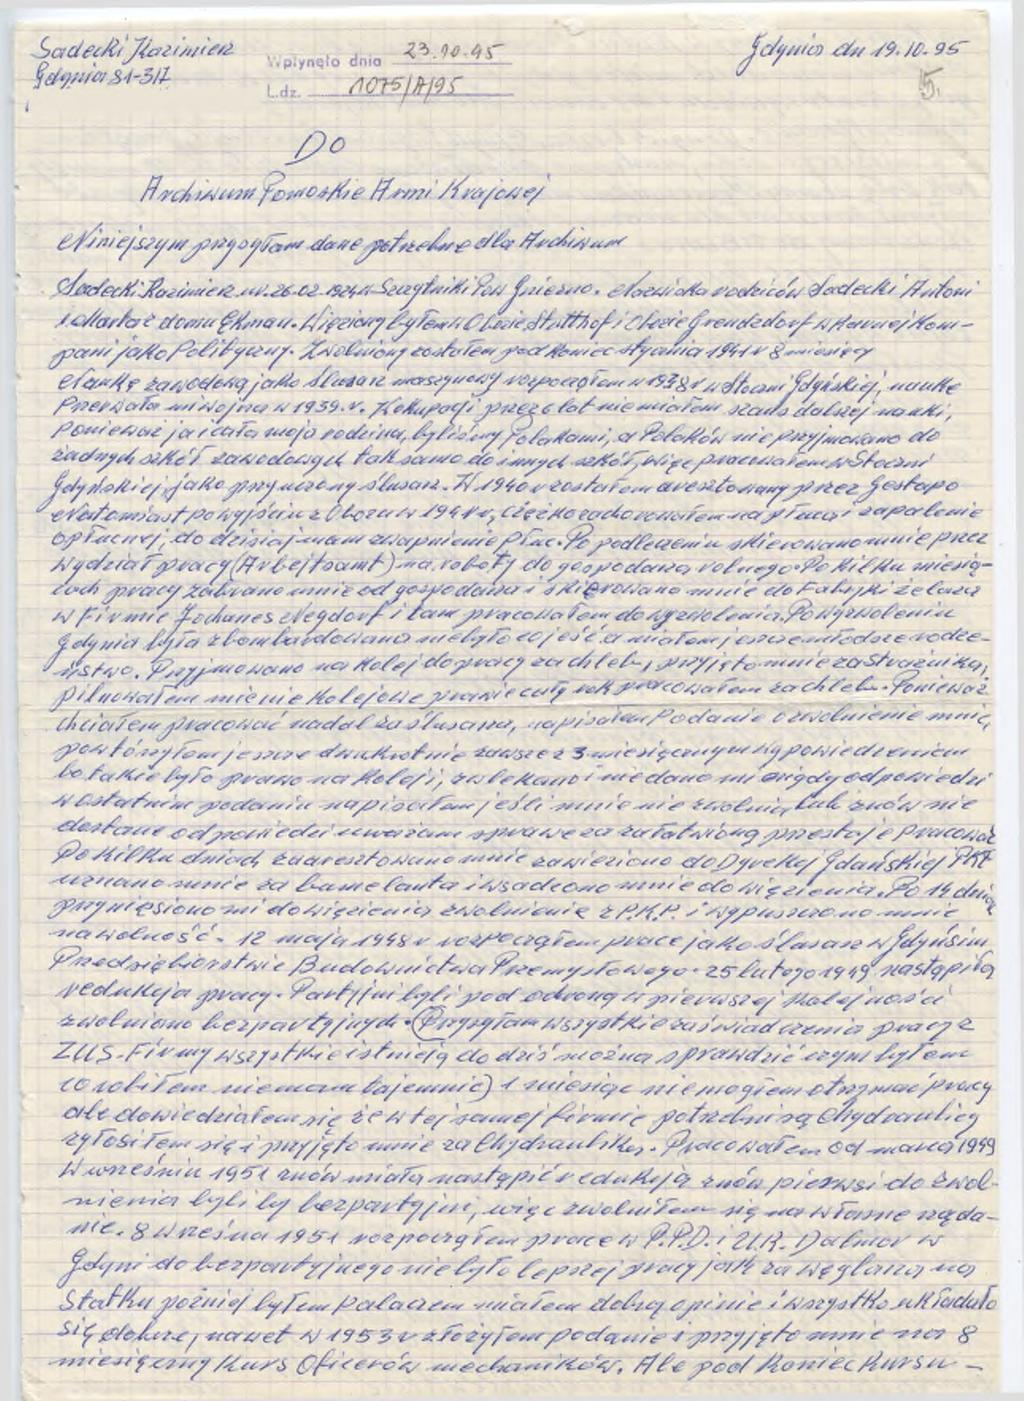 Sadecki Kazimierz
Gdynia 81-317
Wpłynęło dnia 23.10.95
L.dz. 1075/A/95
Gdynia dn 19.10.95
5.
Do
Archiwum Pomorskie Armi Krajowej
Niniejszym przysyłam dane potrzebne dla Archiwum
Sadecki Kazimierz ur. 26.02.1924 w Szczytniki Pow Gniezno. Nazwiska rodziców Sadecki Antoni
i Marta z domu Ekman. Więziony byłem w Obozie Stutthof i Obozie Grenzdorf w Karnej Kom-
pani jako Polityczny. Zwolniony zostałem pod koniec stycznia 1941 r 8 miesięcy
Naukę zawodową jako ślusarz maszynowy rozpocząłem w 1938 r w Stoczni Gdyńskiej, naukę
Przerwała mi wojna w 1939.r. Z okupacji przez 6 lat nie miałem szans dalszej nauki,
ponieważ ja i cała moja rodzina, byliśmy Polakami, a Polaków nie przyjmowano do
żadnych szkół zawodowych tak samo do innych szkół, więc pracowałem w Stoczni
Gdyńskiej, jako przyuczony ślusarz. W 1940 r zostałem aresztowany przez Gestapo
Natomiast po wyjściu z Obozu w 1941 r, ciężko zachorowałem na płuca i zapalenie
opłucnej, do dzisiaj mam zwapnienie płuc. Po podleczeniu skierowano mnie przez
wydział pracy (Arbejtsamt) na roboty do gospodarza rolnego. Po kilku miesią-
cach pracy zabrano mnie od gospodarza i skierowano mnie do Fabryki żelaza
w Firmie Johanes i tam pracowałem do wyzwolenia. Po wyzwoleniu
Gdynia była zbombardowana nie było co jeść a miałem jeszcze młodsze rodze-
ństwo. Przyjmowano na kolej do pracy za chleb, przyjęto mnie za Strażnika,
pilnowałem mienie kolejowe prawie cały rok pracowałem za chleb. Ponieważ
chciałem pracować nadal za ślusarza, napisałem Podanie o zwolnienie mnie,
powtórzyłem jeszcze dwukrotnie zawsze z 3 miesięcznym wypowiedzeniem
bo takie było prawo na kolei, zwlekano i nie dano mi nigdy odpowiedzi
w ostatnim podaniu napisałem jeśli mnie nie zwolnią lub znów nie
dostane odpowiedzi uważam sprawe za załatwioną przestaje Pracować
Po kilku dniach zaaresztowano mnie zawieziono do Dyrekcj Gdańskiej PKP
uznano mnie za bumelanta i wsadzono mnie do więzienia. Po 14 dniach
przyniesiono mi do więzienia zwolnienie z P.K.P. i wypuszczono mnie
na wolność. 12 maja 1948 r rozpocząłem prace jako ślusarz w Gdyńskim
Przedsiębiorstwie Budownictwa Przemysłowego. 25 lutego 1949 nastąpiła
redukcja pracy. Partyjni byli pod ochroną w pierwszej kolejności
zwolniono bezpartyjnych. (Przysyłam wszystkie zaświadczenia pracy z
ZUS. Firmy wszystkie istnieją do dziś można sprawdzić czym byłem
co robiłem niemam tajemnic) 1 miesiąc nie mogłem otrzymać pracy
ale dowiedziałem się że w tej samej firmie potrzebni są Chydraulicy
zgłosiłem się i przyjęto mnie za Chydraulika. Pracowałem od marca 1949
W wrześniu 1951 znów miała nastąpić redukcja znów pierwsi do zwol-
nienia byli by bezpartyjni, więc zwolniłem się na własne żąda-
nie. 8 Wrześna 1951 rozpocząłem prace w P.P.D. i U.R. Dalmor w
Gdyni do bezpartyjnego nie było lepszej pracy jak za węglarza na
Statku poźniej byłem palaczem miałem dobrą opinie i wszystko układało
się dobrze, nawet w 1953 r złożyłem podanie i przyjęto mnie na 8
miesięczny Kurs Oficerów mechaników. Ale pod Koniec Kursu -